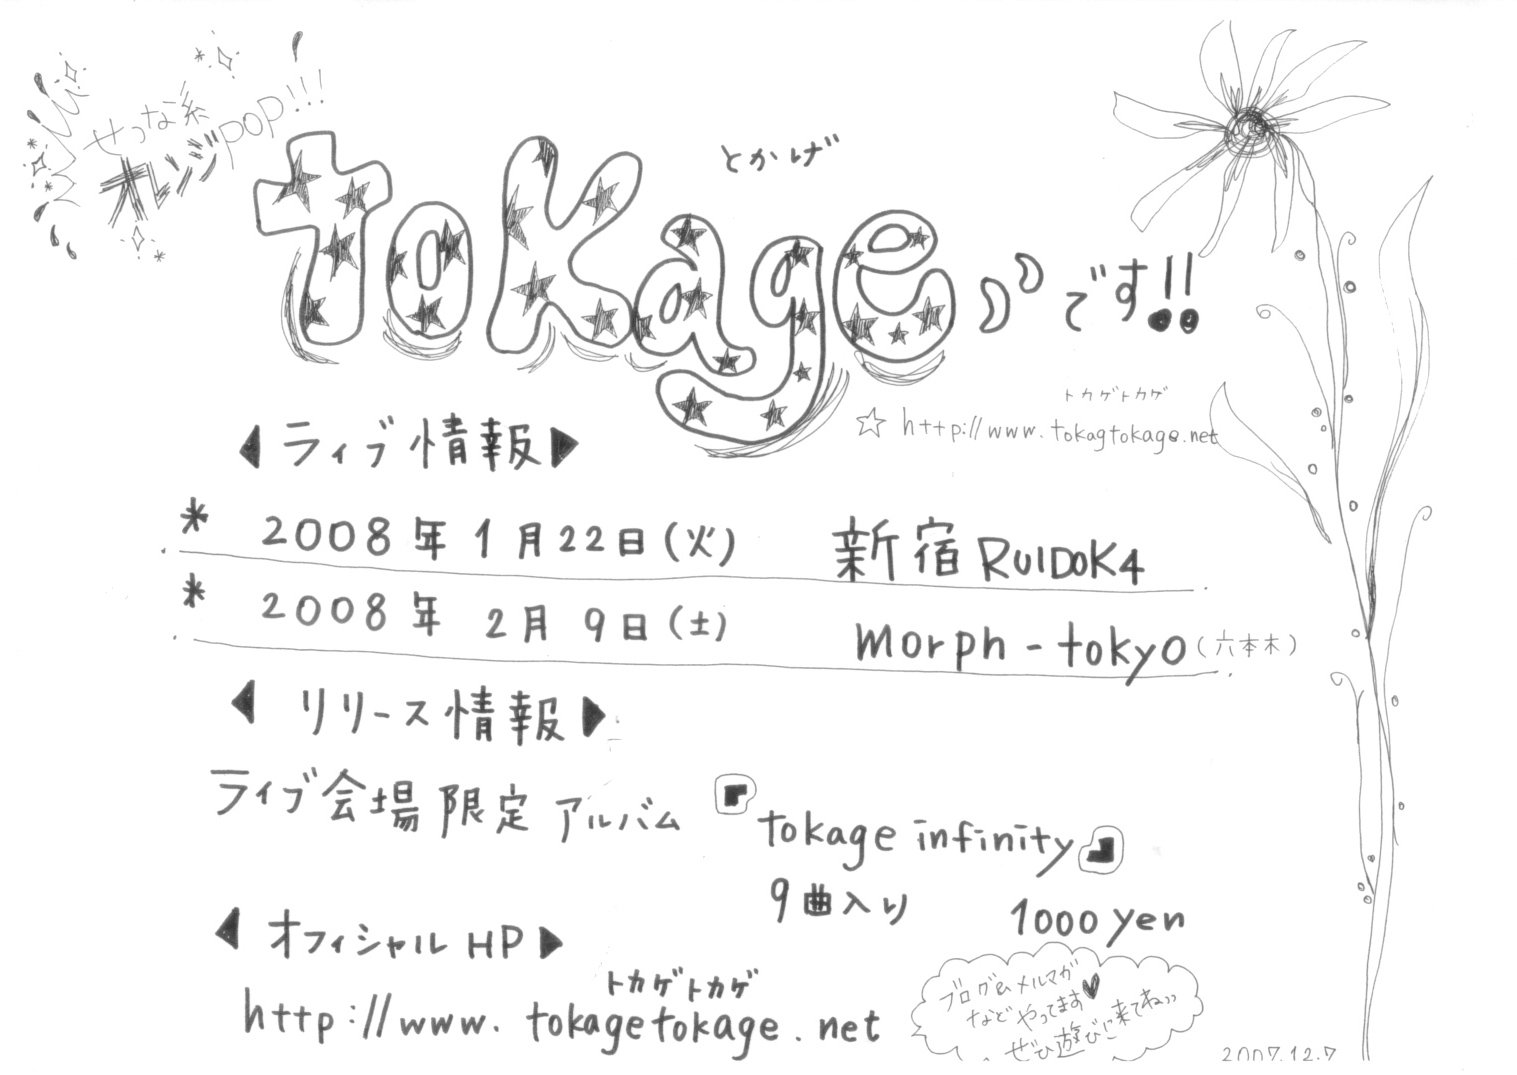 せつな系
オレンジpop!!!
とかげ
tokage です!!
トカゲトカゲ
☆ http://www.tokagtokage.net
◀ ライブ情報 ▶
* 2008年1月22日(火) 新宿RUIDOK4
* 2008年 2月 9日(土) morph-tokyo(六本木)
◀ リリース情報 ▶
ライブ会場限定アルバム 『tokage infinity』
9曲入り 1000 yen
◀ オフィシャルHP ▶
トカゲトカゲ
http://www.tokagetokage.net
ブログ&メルマガ
などやってます♥
ぜひ遊びに来てねッッ
2007.12.7